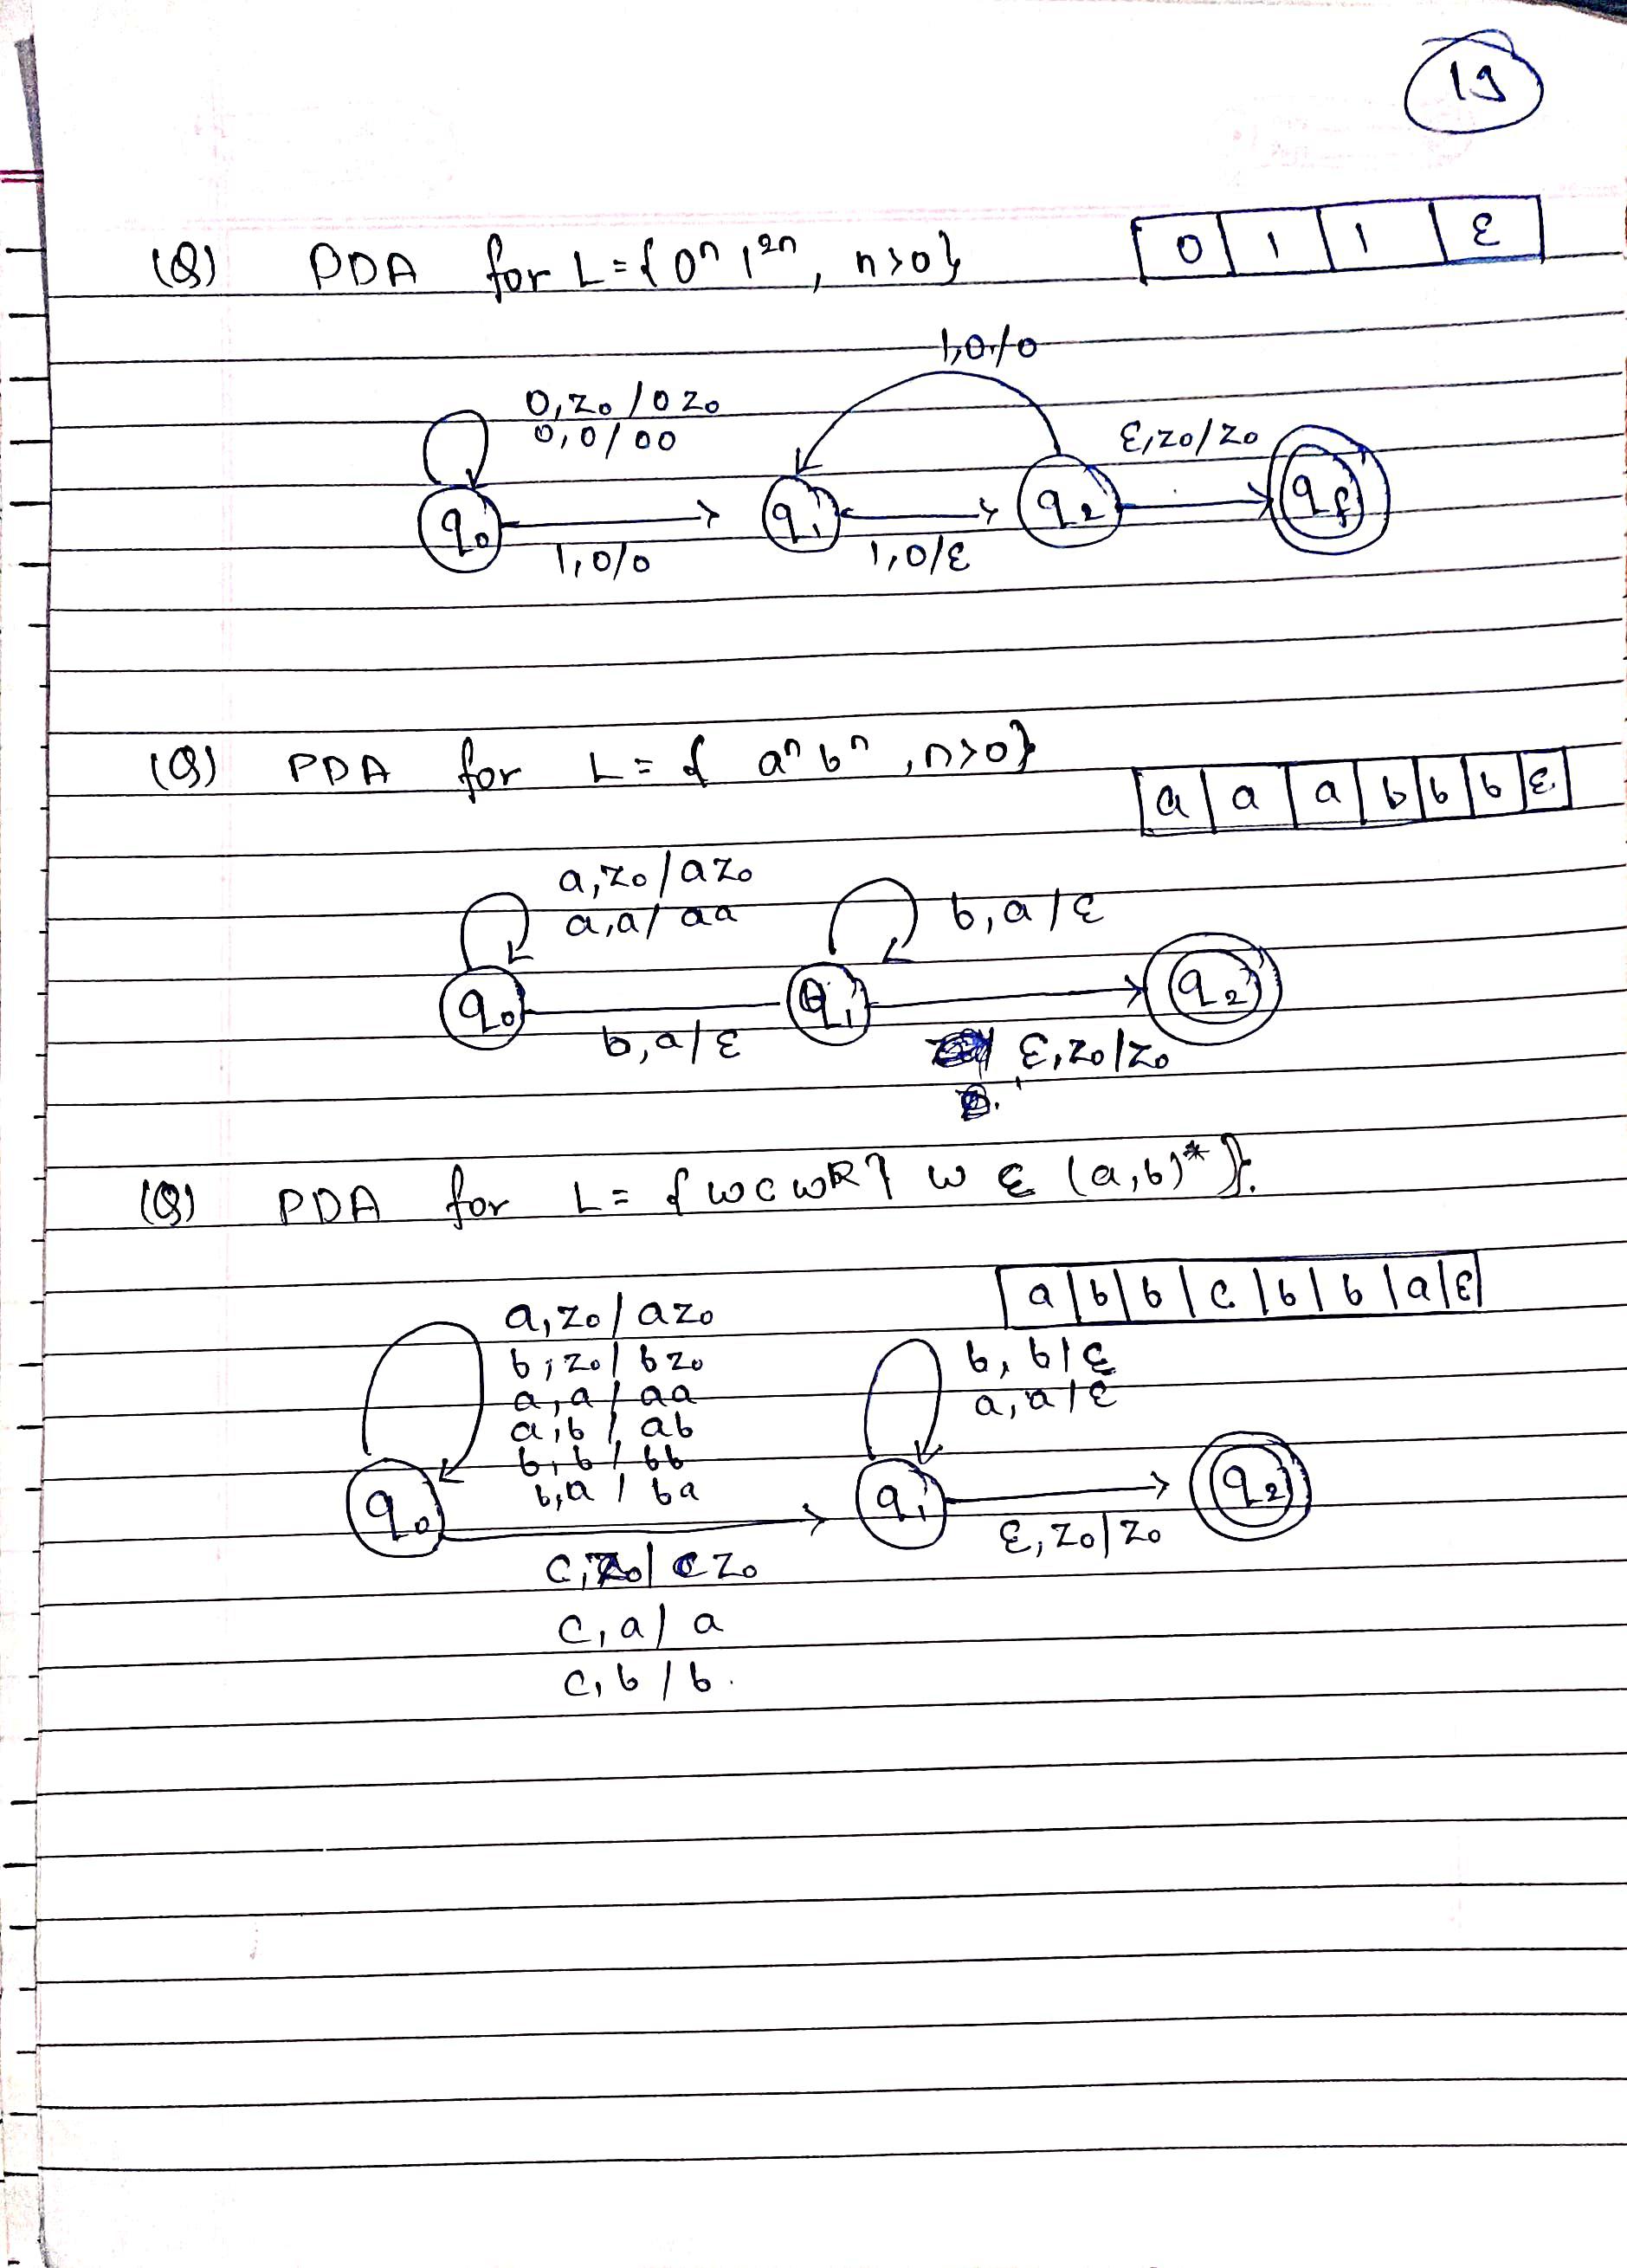 19
(Q) PDA for L = { 0ⁿ 1²ⁿ, n>0}
0 | 1 | 1 | ε
1,0/0
0,z₀/0z₀
0,0/00
ε,z₀/z₀
q₀ q₁ q₂ qf
1,0/0 1,0/ε
(Q) PDA for L = { aⁿ bⁿ, n>0}
a | a | a | b | b | b | ε
a,z₀/az₀
a,a/aa b,a/ε
q₀ q₁ q₂
b,a/ε ε,z₀/z₀
(Q) PDA for L = { w c wR } w ε (a,b)* }.
a | b | b | c | b | b | a | ε
a,z₀/az₀
b,z₀/bz₀ b,b/ε
a,a/aa a,a/ε
a,b/ab
b,b/bb
b,a/ba
q₀ q₁ q₂
ε,z₀/z₀
c,z₀/cz₀
c,a/a
c,b/b.